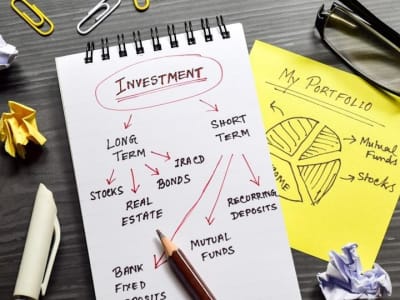 INVESTMENT
LONG
TERM
SHORT
TERM
STOCKS
REAL
ESTATE
BONDS
IRA CD
BANK
FIXED
DEPOSITS
MUTUAL
FUNDS
RECURRING
DEPOSITS
MY PORTFOLIO
Mutual
Funds
Stocks